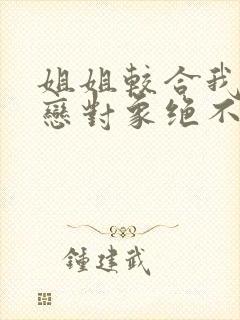 姐姐較合我
戀對象絕不
鍾建武